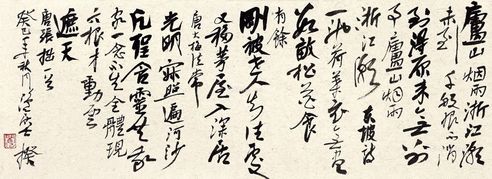 廬山烟雨浙江潮
未到千般恨不消
到得原來無別
事廬山烟雨
浙江潮 東坡詩
一池荷葉衣無盡
數畝松花食
有餘
剛被世人知住處
又移茅屋入深居
唐大梅法常
光明寂照遍河沙
凡聖含靈共我
家一念不生全體現
六根才動雲
遮天
唐張拙
癸巳